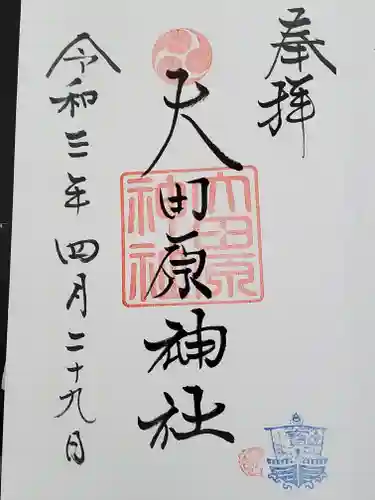 奉拝
大田原神社
大田原
神社
令和三年四月二十九日